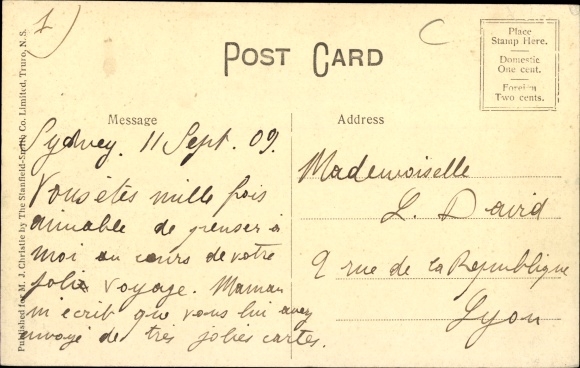 1)
C
POST CARD
Place
Stamp Here.
Domestic
One cent.
Foreign
Two cents.
Published for M. J. Christie by The Stanfield-Smith Co. Limited, Truro, N. S.
Message
Address
Sydney. 11 Sept. 09.
Vous êtes mille fois
aimable de penser à
moi au cours de votre
joli voyage. Maman
m'écrit que vous lui avez
envoyé de très jolies cartes.
Mademoiselle
L. David
9 rue de la Republique
Lyon